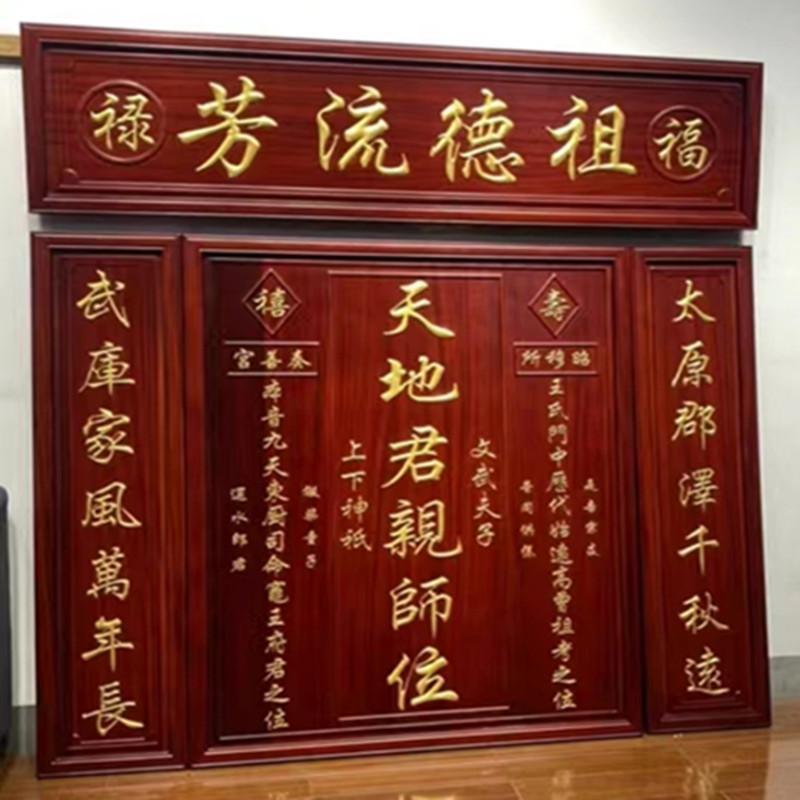 福 祖德流芳 禄
太原郡澤千秋遠
壽
昭穆所
王氏門中歷代始遠高曾祖考之位
文武夫子
天地君親師位
上下神祇
禧
奏善宮
本音九天東厨司命竈王府君之位
運水郎君
武庫家風萬年長